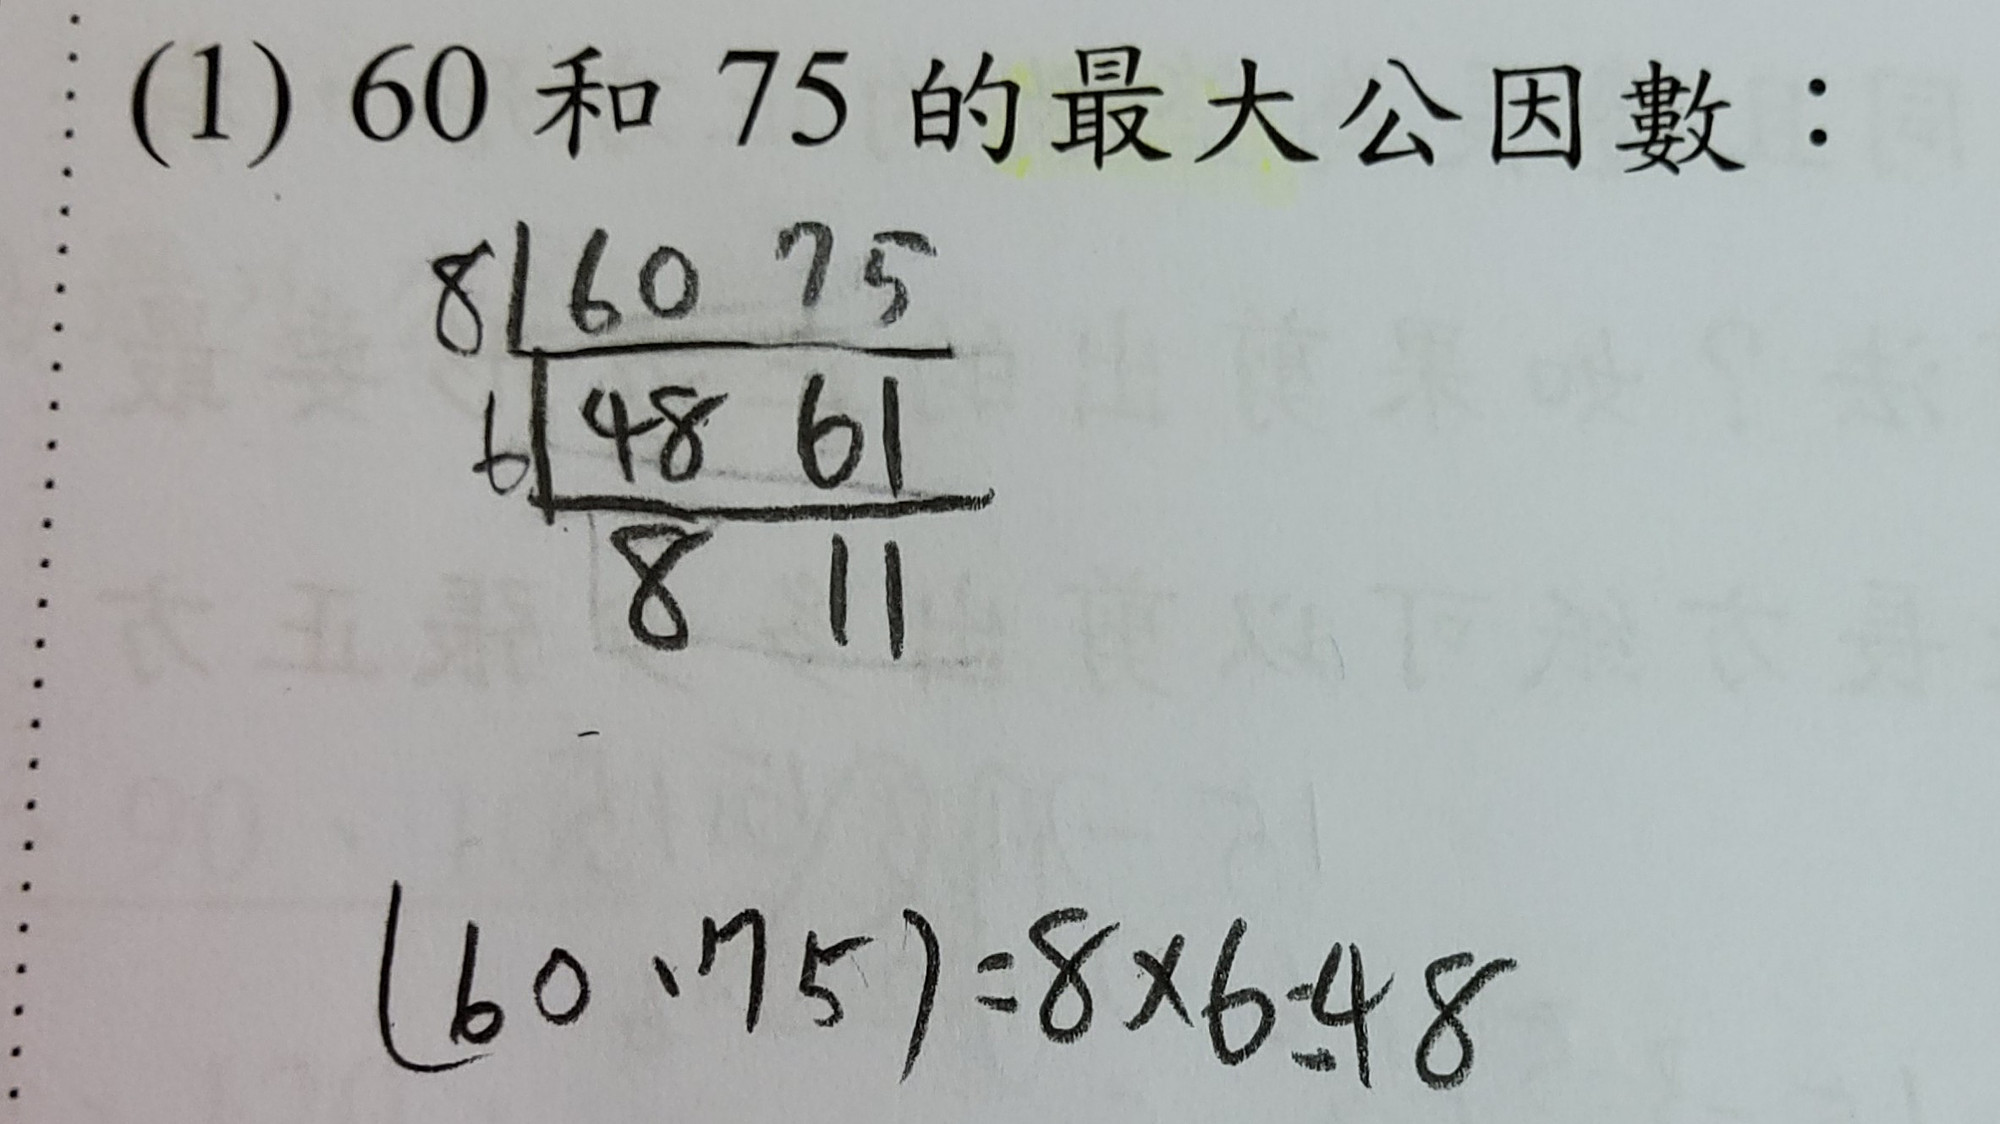 (1) 60 和 75 的最大公因數：
8 60 75
6 48 61
8 11
(60、75)=8×6=48